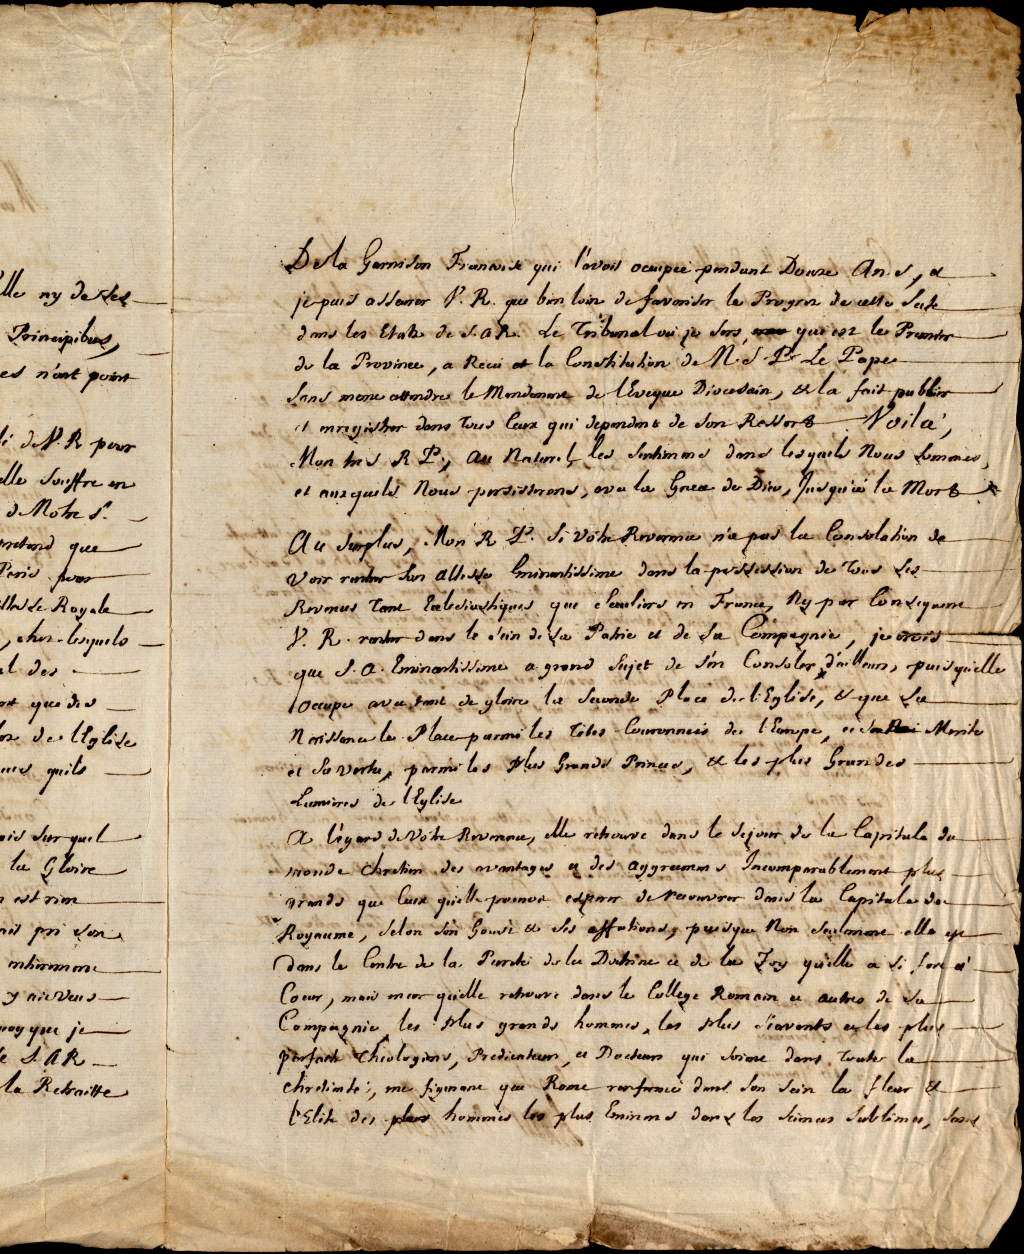 Ville ny de ses
Principibus,
es n'ont point
de V. R. pour
elle souffre en
de Notre Sr.
pretend que
Paris pour
Royale
, chez lesquels
al des
que des
de l'Eglise
qu'ils
sur quel
la Gloire
est rien
pri son
y
quoy que je
S. A R
la Retraitte
De la Garnison Francoise qui l'avoit occupée pendant Douze Ans, et
je puis asseurer V. R. que bien loin de favoriser le Progrez de cette Secte
dans les Etats de S. A R. Le Tribunal ou je sers, qui est le Premier
de la Province, a Receu et la Constitution de N. S. P. Le Pape
sans meme attendre le Mandement de l'Eveque Diocesain, et la fait publier
et enregistrer dans Tous Ceux qui dependent de son Ressort Voila,
Mon tres R. P., au Naturel, les sentimens dans lesquels Nous sommes,
et auxquels Nous persisterons, avec la Grace de Dieu, Jusqu'à la Mort.
Au surplus, Mon R. P. Si Vôtre Reverence n'a pas la Consolation de
Voir rentrer son Altesse Eminentissime dans la possession de Tous ses
Revenus Tant Ecclesiastiques que seculiers en France, Ny par Consequent
V. R. rentrer dans le sein de sa Patrie et de sa Compagnie, je crois
que S. A. Eminentissime a grand sujet de s'en Consoler d'ailleurs, puis qu'elle
occupe avec tant de gloire la seconde Place de l'Eglise, et que sa
Naissance le Place parmi les Têtes Couronnées de l'Europe, et son Merite
et sa Vertu, parmi les plus Grands Princes, et les plus Grandes
Lumieres de l'Eglise
A l'égard de Vôtre Reverence, elle retrouve dans le sejour de la Capitale du
monde Chretien des avantages et des aggremens Incomparablement plus
grands que Ceux qu'elle pouvoit esperer de recouvrer dans la Capitale du
Royaume, selon son Goust et ses affections, puisque Non seulement elle est
dans le Centre de la Pureté de la Doctrine et de la Foy qu'elle a si fort à
Coeur, mais encor qu'elle retrouve dans le College Romain et autres de sa
Compagnie, les plus grands hommes, les plus sçavants et les plus
parfaits Theologiens, Predicateurs, et Docteurs qui soient dans toute la
chretienté, me figurant que Rome renferme dans son sein la fleur et
l'Elite des hommes les plus Eminens dans les sciences sublimes, sans